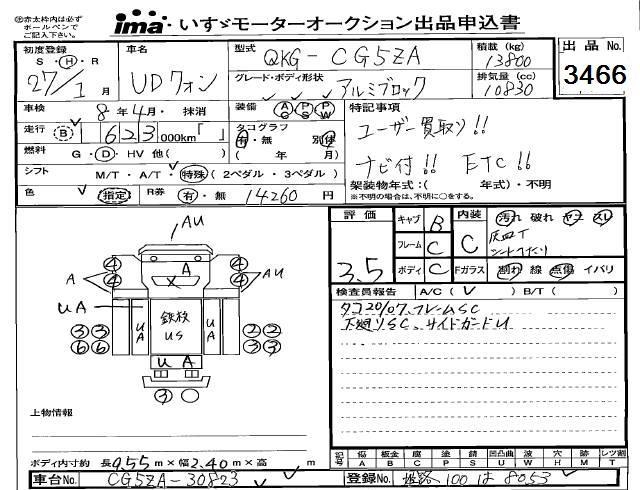 ㊟赤太枠内は必ず
ボールペンで
ご記入下さい。
ima いすゞモーターオークション出品申込書
初度登録 車名 型式 QKG-CG5ZA 積載 (kg) 13800 出品 No.
S・H・R 27/1月 UDクオン グレード・ボディ形状 アルミブロック 排気量 (cc) 10830 3466
車検 8年4月・抹消 装備 AC PS PW 特記事項
走行 B 623,000km「 」 タコグラフ 有・無 別体 ユーザー買取り!!
燃料 G・D・HV 他( ) ( 年 月) ナビ付!! ETC!!
シフト M/T・A/T・特殊(2ペダル・3ペダル) 架装物年式:( 年式)・不明
色 指定 R券 有・無 14260円 ※不明の場合は、不明に○をする。
評価 3.5
キャブ B 内装 C 汚れ 破れ ヤニ スレ
フレーム C 灰皿T
ボディ C Fガラス 割れ 線 点傷 イバリ
検査員報告 A/C( ) B/T( )
タコ20/07.フレームSC
下廻りSC、サイドガードU
AU
④ A ④
A ④ X ④ AU
UA
③③ UA 鉄板 US UA ②②
⑥⑥ UA ③③
③
上物情報
ボディ内寸約 長9.55m×幅2.40m×高 m
記号 傷 板金 腐 塗 錆 凹凸曲 波 穴 跡 レツ割
A B C P S U W H M T
車台No. CG5ZA-30823 登録No. 姫路 100 は 8053